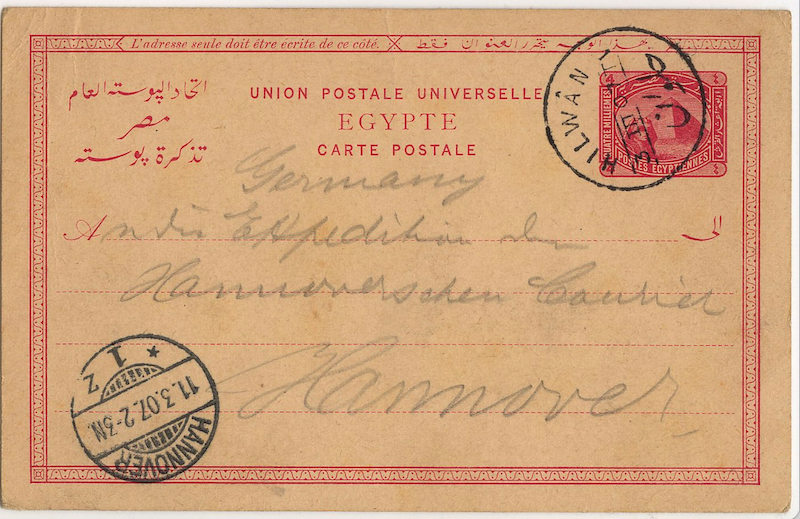 L'adresse seule doit être ecrite de ce côté.
هذا الوجه يتحرر العنوان فقط
اتحاد البوسته العام
مصر
تذكرة بوسته
UNION POSTALE UNIVERSELLE
EGYPTE
CARTE POSTALE
QUATRE MILLIEMES
POSTES EGYPTIENNES
HILWÂN
Germany
An die Expedition des
الى
Hannoverschen Courier
Hannover
HANNOVER
11.3.07. 2-3N.
* 1 Z